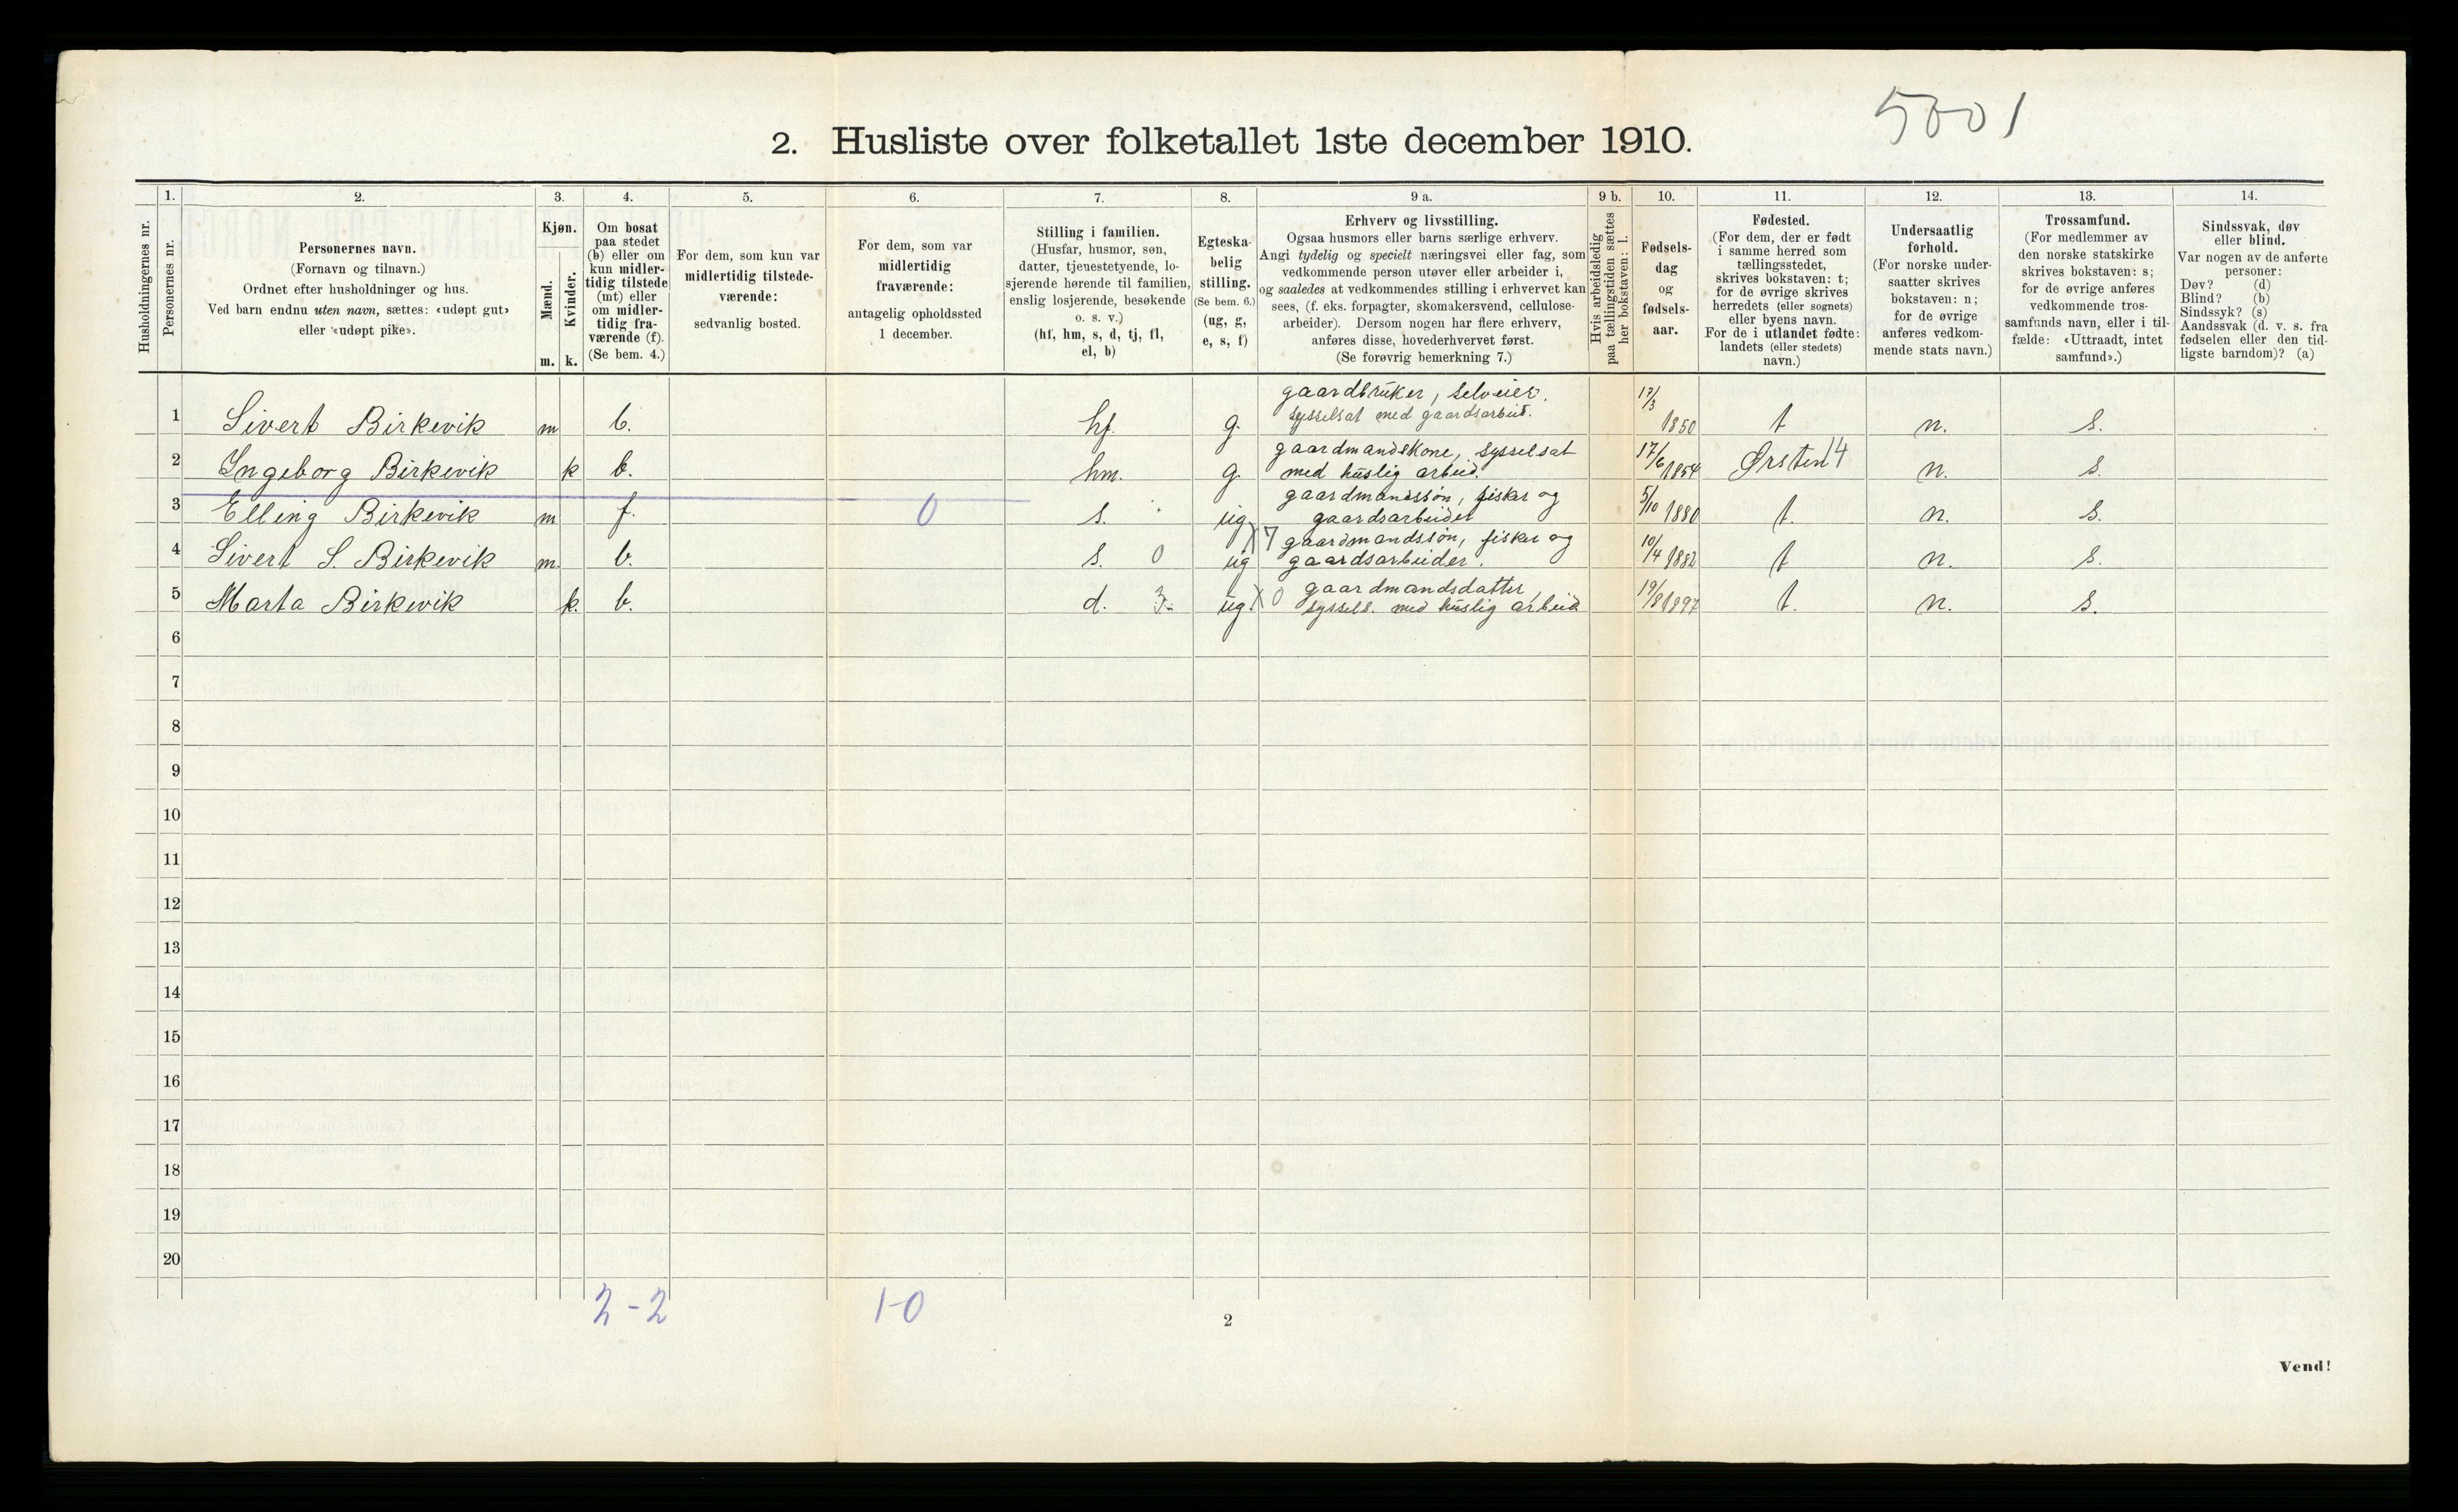 5001
2. Husliste over folketallet 1ste december 1910.
Husholdningernes nr.
1.
Personernes nr.
2.
Personernes navn.
(Fornavn og tilnavn.)
Ordnet efter husholdninger og hus.
Ved barn endnu uten navn, sættes: «udøpt gut»
eller «udøpt pike».
3.
Kjøn.
Mænd.
Kvinder.
m. k.
4.
Om bosat
paa stedet
(b) eller om
kun midler-
tidig tilstede
(mt) eller
om midler-
tidig fra-
værende (f).
(Se bem. 4.)
5.
For dem, som kun var
midlertidig tilstede-
værende:
sedvanlig bosted.
6.
For dem, som var
midlertidig
fraværende:
antagelig opholdssted
1 december.
7.
Stilling i familien.
(Husfar, husmor, søn,
datter, tjenestetyende, lo-
sjerende hørende til familien,
enslig losjerende, besøkende
o. s. v.)
(hf, hm, s, d, tj, fl,
el, b)
8.
Egteska-
belig
stilling.
(Se bem. 6.)
(ug, g,
e, s, f)
9 a.
Erhverv og livsstilling.
Ogsaa husmors eller barns særlige erhverv.
Angi tydelig og specielt næringsvei eller fag, som
vedkommende person utøver eller arbeider i,
og saaledes at vedkommendes stilling i erhvervet kan
sees, (f. eks. forpagter, skomakersvend, cellulose-
arbeider). Dersom nogen har flere erhverv,
anføres disse, hovederhvervet først.
(Se forøvrig bemerkning 7.)
9 b.
Hvis arbeidsledig
paa tællingstiden sættes
her bokstaven: l.
10.
Fødsels-
dag
og
fødsels-
aar.
11.
Fødested.
(For dem, der er født
i samme herred som
tællingsstedet,
skrives bokstaven: t;
for de øvrige skrives
herredets (eller sognets)
eller byens navn.
For de i utlandet fødte:
landets (eller stedets)
navn.)
12.
Undersaatlig
forhold.
(For norske under-
saatter skrives
bokstaven: n;
for de øvrige
anføres vedkom-
mende stats navn.)
13.
Trossamfund.
(For medlemmer av
den norske statskirke
skrives bokstaven: s;
for de øvrige anføres
vedkommende tros-
samfunds navn, eller i til-
fælde: «Uttraadt, intet
samfund».)
14.
Sindssvak, døv
eller blind.
Var nogen av de anførte
personer:
Døv? (d)
Blind? (b)
Sindssyk? (s)
Aandssvak (d. v. s. fra
fødselen eller den tid-
ligste barndom)? (a)
1 Sivert Birkevik m b. hf. g. gaardbruker, selveier.
sysselsat med gaardsarbeid. 17/3 1850 t n. s.
2 Ingeborg Birkevik k b. hm. g. gaardmandskone, sysselsat
med huslig arbeid. 17/6 1854 Ørsten 14 n. s.
3 Elling Birkevik m f. 0 s. ug gaardmandssøn, fisker og
gaardsarbeider 5/10 1880 t. n. s.
4 Sivert S. Birkevik m. b. s. 0 ug 7 gaardmandssøn, fisker og
gaardsarbeider. 10/4 1882 t n. s.
5 Marta Birkevik k. b. d. 3. ug. 0 gaardmandsdatter,
syssels. med huslig arbeid 19/8 1897 t. n. s.
6
7
8
9
10
11
12
13
14
15
16
17
18
19
20
2-2 1-0
2
Vend!